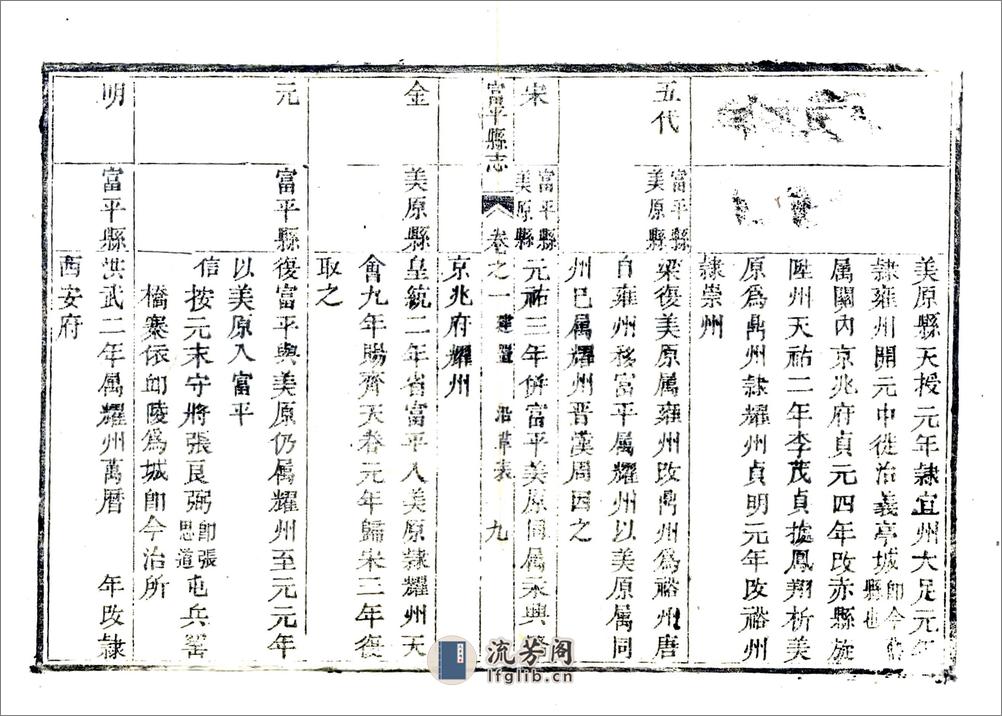 美原縣天授元年隸宜州大足元年
隸雍州開元中徙治義亭城即今縣也
属關内京兆府貞元四年改赤縣旋
陞州天祐二年李茂貞據鳳翔析美
原爲鼎州隸耀州貞明元年改裕州
隸崇州
五代
富平縣
美原縣
梁復美原属雍州改鼎州爲裕州唐
自雍州移富平属耀州以美原属同
州已属耀州晉漢周因之
宋
富平縣
美原縣
元祐三年併富平美原同属永興
富平縣志
卷之一 建置 沿革表 九
京兆府耀州
金
美原縣
皇統二年省富平入美原隸耀州天
會九年賜齊天眷元年歸宋二年復
取之
元
富平縣
復富平與美原仍属耀州至元元年
以美原入富平
信按元末守將張良弼即張思道屯兵
橋寨依卽陵爲城卽今治所
明
富平縣
洪武二年属耀州萬曆 年改隸
西安府
流芳阁
lfglib.cn